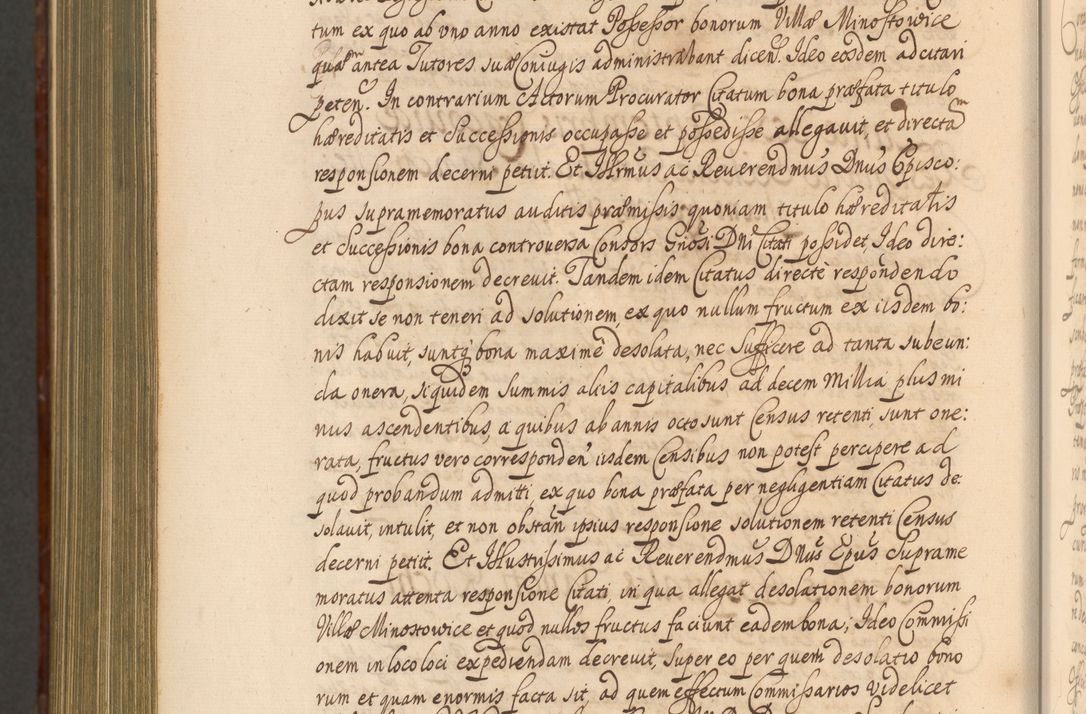 tum ex quo ab vno anno existat Possessor bonorum Villæ Minostowice
quæ antea Tutores suæ Coniugis administrabant dicen. Ideo eosdem adcitari
peten. In contrarium Actorum Procurator Citatum bona præfata titulo
hæreditatis et Successionis occupasse et possedisse allegauit, et directam
responsionem decerni petiit. Et Illrmus ac Reuerendmus Dnus Episco:
pus supramemoratus auditis præmissis quoniam titulo hæreditatis
et Successionis bona controuersa Consors Gnosi Dni Citati possidet, Ideo dire:
ctam responsionem decreuit. Tandem idem Citatus directè respondendo
dixit se non teneri ad solutionem, ex quo nullum fructum ex iisdem bo:
nis habuit, suntq bona maximè desolata, nec sufficere ad tanta subeun:
da onera, siquidem summis aliis capitalibus ad decem Millia plus mi
nus ascendentibus, a quibus ab annis octo sunt Census retenti, sunt one:
rata, fructus vero corresponden iisdem Censibus non potest percipere ad
quod probandum admitti, ex quo bona præfata per negligentiam Citatus de:
solauit, intulit, et non obstan ipsius responsione solutionem retenti Census
decerni petiit. Et Illustrissimus ac Reuerendmus Dnus Epus Suprame
moratus attenta responsione Citati, in qua allegat desolationem bonorum
Villæ Minostowice et quod nullos fructus faciunt eadem bona; Ideo Commissi
onem in loco loci expediendam decreuit, super eo per quem desolatio bono
rum et quam enormis facta sit, ad quem effectum Commissarios videlicet